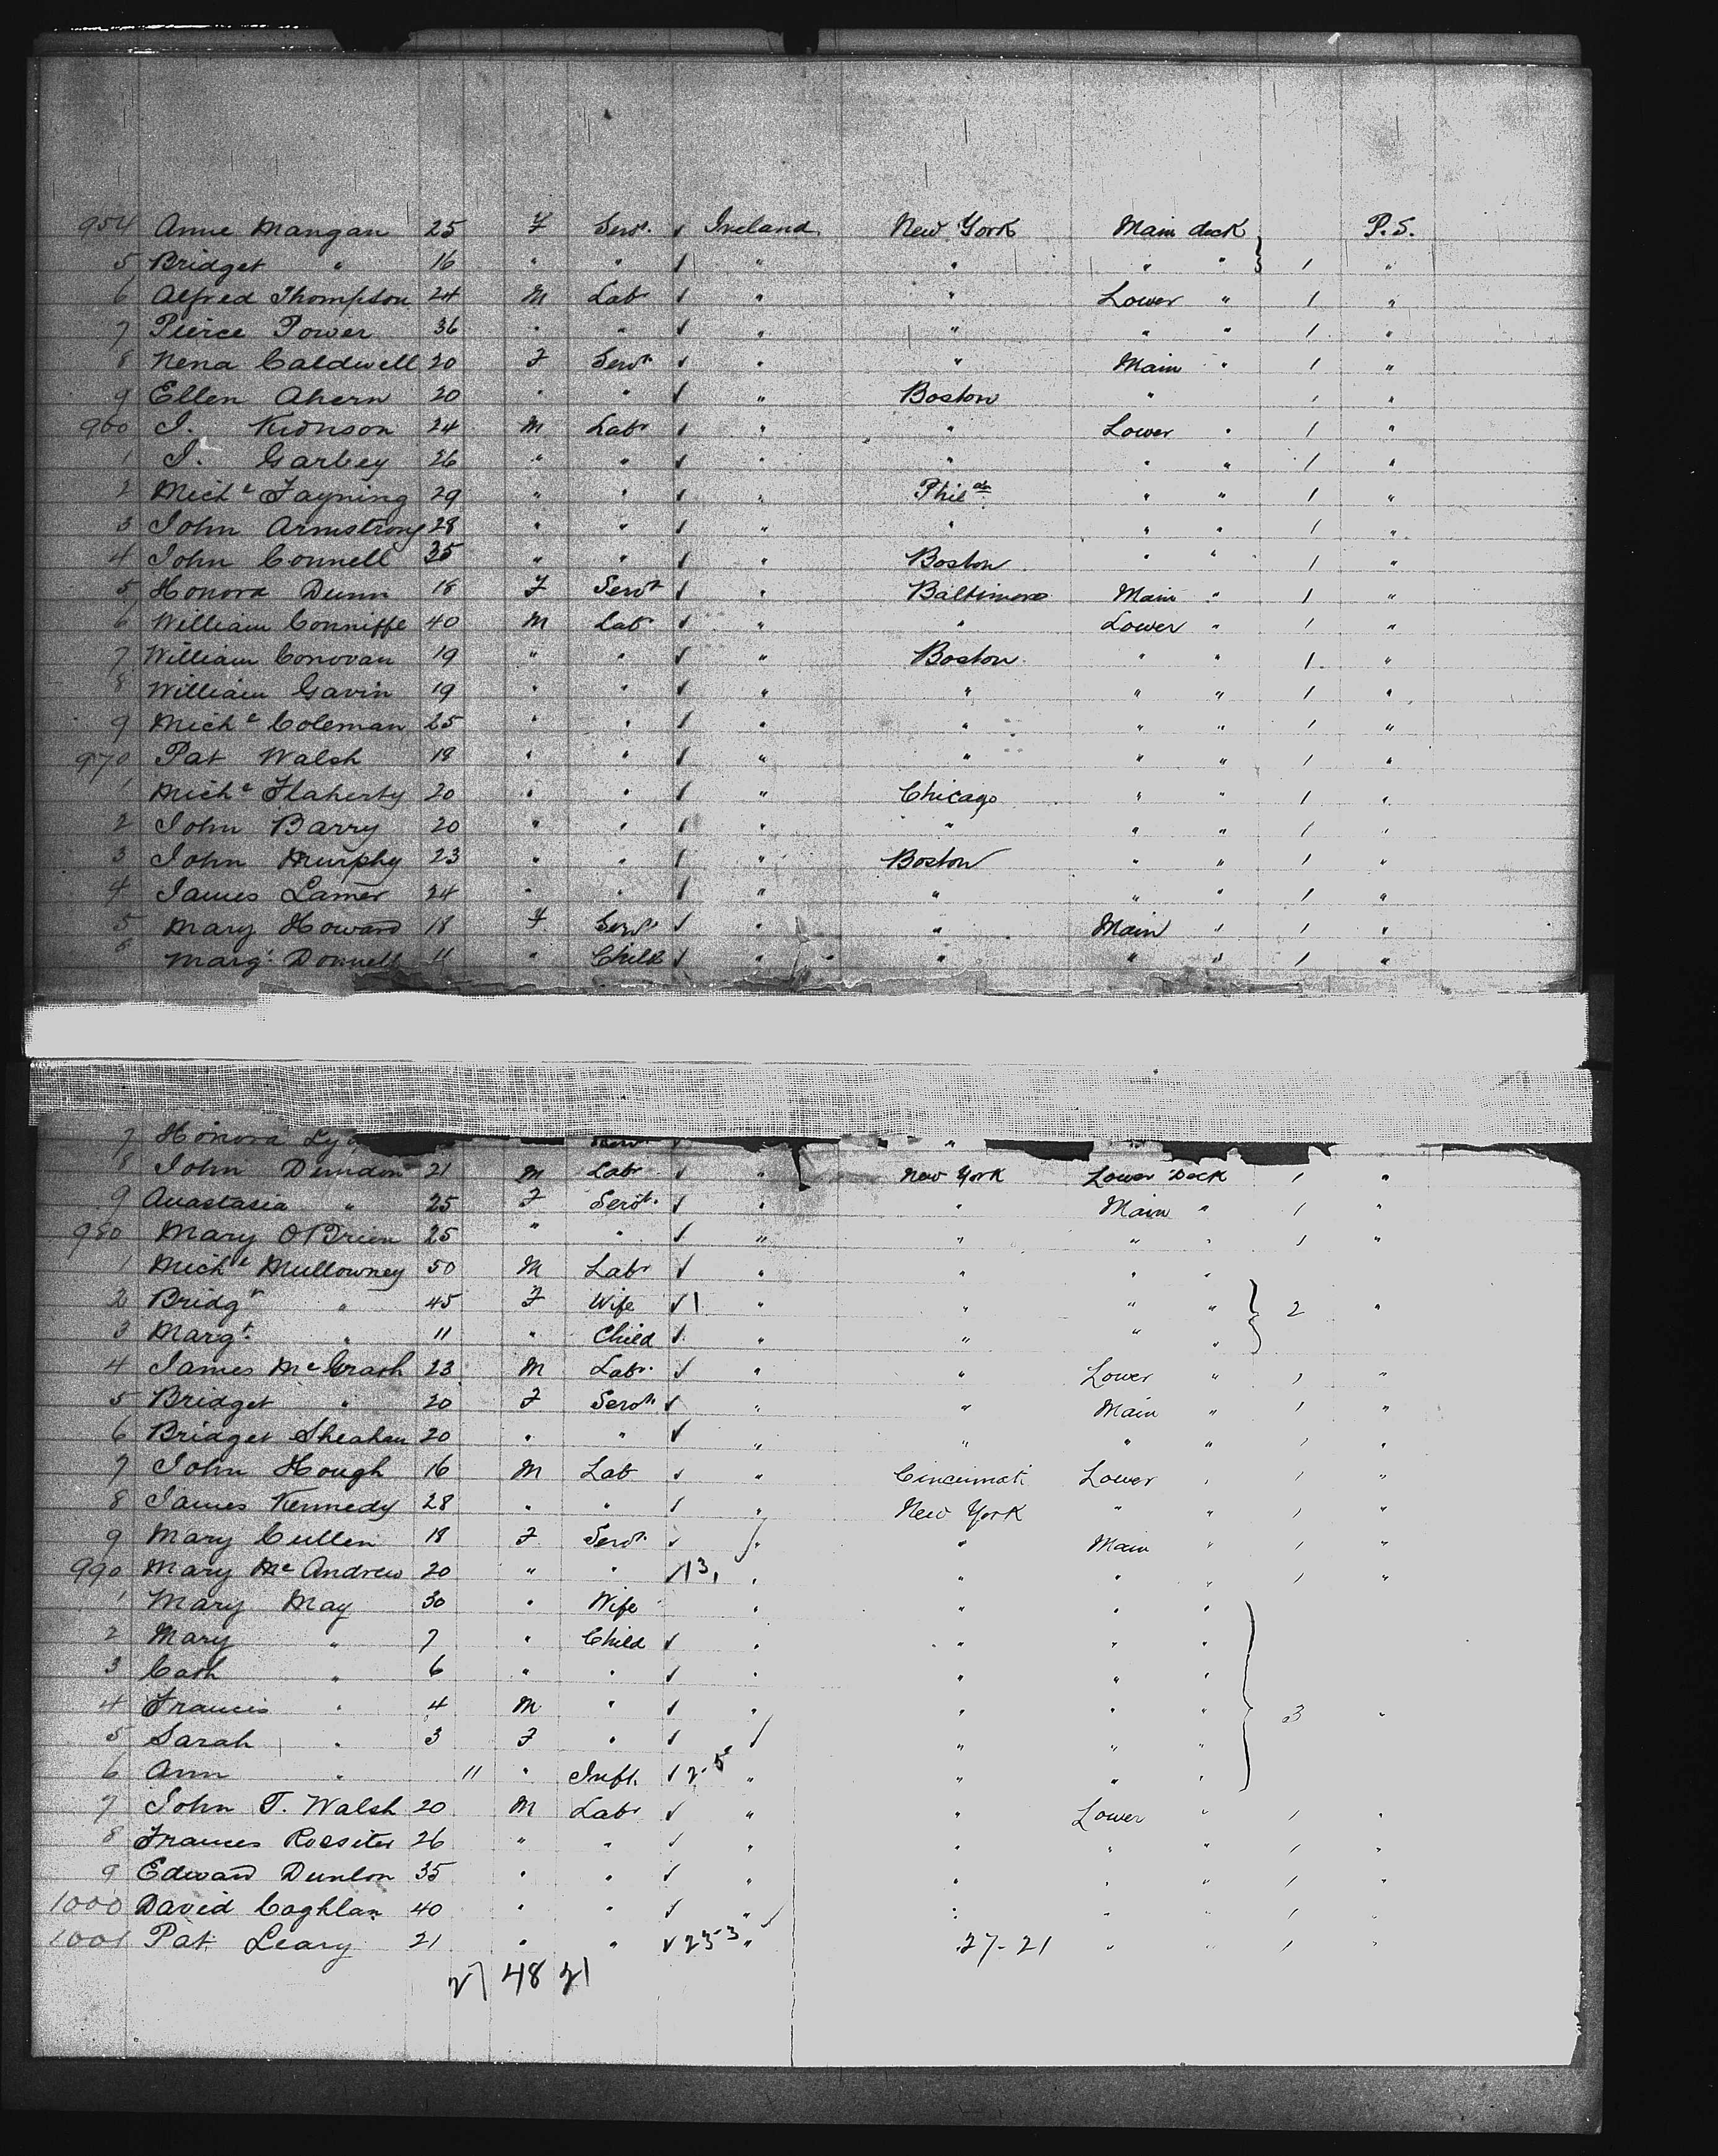 954 Anne Mangan 25 F Servt. ✓ Ireland New York Main deck P.S.
5 Bridget " 16 " " ✓ " " " " } 1 "
6 Alfred Thompson 24 M Labr ✓ " " Lower " 1 "
7 Pierce Power 36 " " ✓ " " " " 1 "
8 Nena Caldwell 20 F Servt. ✓ " " Main " 1 "
9 Ellen Ahern 20 " " ✓ " Boston " 1 "
960 J. 24 M Labr ✓ " " Lower " 1 "
1 J. Garbey 26 " " ✓ " " " " 1 "
2 Michl Fayning 29 " " ✓ " Phila " " 1 "
3 John Armstrong 28 " " ✓ " " " " 1 "
4 John Connell 35 " " ✓ " Boston " " 1 "
5 Honora Dunn 18 F Servt ✓ " Baltimore Main " 1 "
6 William Conniffe 40 M Labr ✓ " " Lower " 1 "
7 William Conovan 19 " " ✓ " Boston " " 1 "
8 William Gavin 19 " " ✓ " " " " 1 "
9 Michl Coleman 25 " " ✓ " " " " 1 "
970 Pat Walsh 19 " " ✓ " " " " 1 "
1 Michl Flaherty 20 " " ✓ " Chicago " " 1 "
2 John Barry 20 " " ✓ " " " " 1 "
3 John Murphy 23 " " ✓ " Boston " " 1 "
4 James Lamer 24 " " ✓ " " " " 1 "
5 Mary Howard 18 F Servt ✓ " " Main " 1 "
6 Margt. Donnell 11 " Child ✓ " " " " 1 "
7 Honora
8 John Dundon 21 M Labr ✓ " New York Lower Deck 1 "
9 Anastasia " 25 F Servt. ✓ " " Main " 1 "
980 Mary O'Brien 25 " " ✓ " " " " 1 "
1 Michl Mullowney 50 M Labr ✓ " " " "
2 Bridgt " 45 F Wife ✓1 " " " " } 2 "
3 Margt. " 11 " Child ✓ " " " "
4 James McGrath 23 M Labr. ✓ " " Lower " 1 "
5 Bridget " 20 F Servt. ✓ " " Main " 1 "
6 Bridget Sheahan 20 " " ✓ " " " " 1 "
7 John Hough 16 M Lab ✓ " Cincinnati Lower " 1 "
8 James Kennedy 28 " " ✓ " New York " " 1 "
9 Mary Cullen 18 F Servt. ✓ " " Main " 1 "
990 Mary McAndrew 20 " " ✓13, " " " " 1 "
1 Mary May 30 " Wife " " " "
2 Mary " 7 " Child ✓ " " " "
3 Cath " 6 " " ✓ " " " "
4 Francis " 4 M " ✓ " " " " } 3 "
5 Sarah " 3 F " ✓ " " " "
6 Ann " 11 " Inft. ✓ 2-5 " " " "
7 John T. Walsh 20 M Labr ✓ " " Lower " 1 "
8 Frances Rossiter 26 " " ✓ " " " " 1 "
9 Edward Dunlon 35 " " ✓ " " " " 1 "
1000 David Coghlan 40 " " ✓ " " " " 1 "
1001 Pat Leary 21 " " ✓ 25-3 " 27-21 " " 1 "
27 48 21